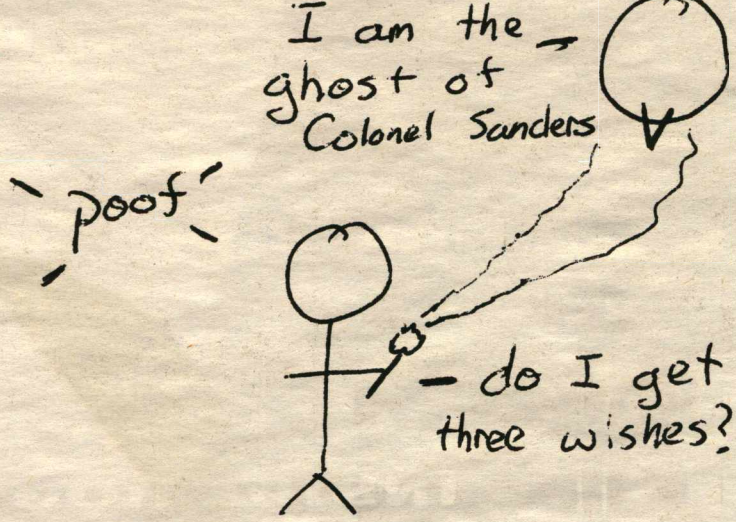 I am the
ghost of
Colonel Sanders
poof
do I get
three wishes?